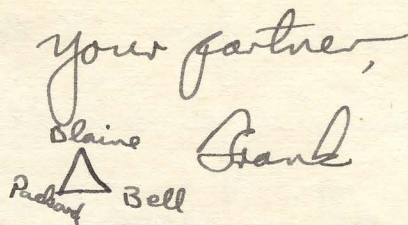 your partner,
Frank
Blaine
Packard Bell